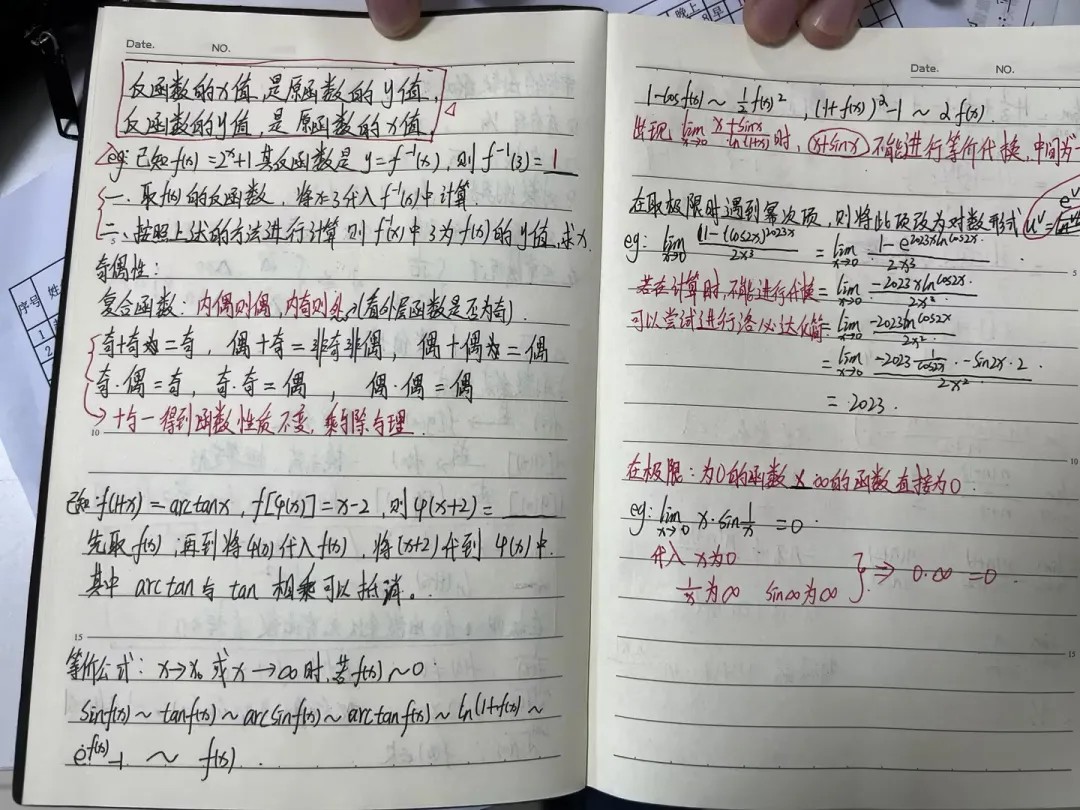 Date. NO.
反函数的x值,是原函数的y值,
反函数的y值,是原函数的x值,
eg:已知f(x)=2^x+1,其反函数是 y=f⁻¹(x),则f⁻¹(3)=1
一、取f(x)的反函数,将x=3代入f⁻¹(x)中计算.
二、按照上述的方法进行计算则f⁻¹(x)中3为f(x)的y值,求x.
奇偶性:
复合函数:内偶则偶,内奇则外(看外层函数是否为奇).
奇+奇=奇,偶+奇=非奇非偶,偶+偶=偶
奇·偶=奇,奇·奇=偶,偶·偶=偶
→+与-得到函数性质不变,乘与除与理.
10
已知f(1+x)=arctanx,f[φ(x)]=x-2,则φ(x+2)=
先取f(x),再到将φ(x)代入f(x),将(x+2)代到φ(x)中.
其中arctan与tan相乘可以抵消。
15
等价公式:x→x₀或x→∞时,若f(x)~0:
sinf(x)~tanf(x)~arcsinf(x)~arctanf(x)~ln(1+f(x)~
e^f(x)-1 ~ f(x).
晚上
早
序号 姓
1
2
Date. NO.
1-cosf(x)~½f(x)²,(1+f(x))^α-1~αf(x).
出现lim x→0 (x+sinx)/ln(1+x)时,(x+sinx)不能进行等价代换,中间为-
在取极限时遇到幂次项,则将此项改为对数形式u^v=e^v
5
eg: lim x→0 (1-(cos2x)^2023x)/2x³ = lim x→0 (1-e^2023xlncos2x)/2x³
若在计算时,不能进行代换= lim x→0 (-2023xlncos2x)/2x²
可以尝试进行洛必达化简= lim x→0 (-2023lncos2x)/2x²
= lim x→0 (-2023 1/cos2x·-sin2x·2)/2x²
=2023.
10
在极限:为0的函数×∞的函数直接为0.
eg: lim x→0 x·sin1/x=0.
代入x为0
1/x为∞ sin∞为∞ }⇒ 0·∞=0.
15